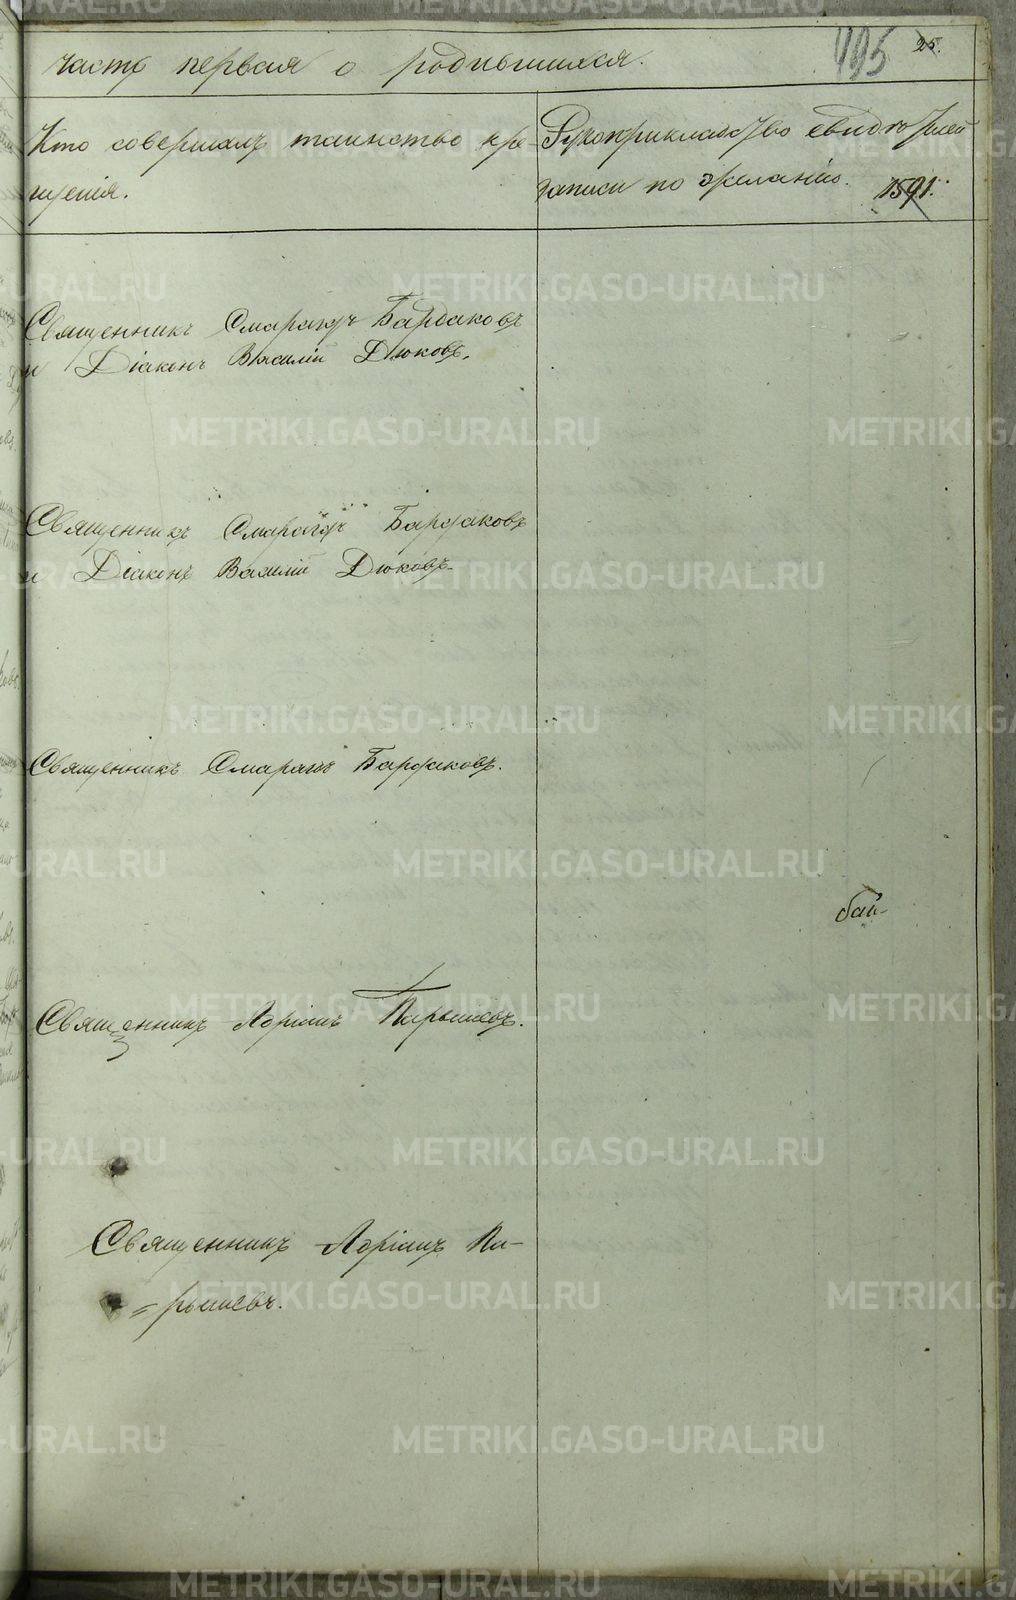 часть первая о родившихся.
495 25.
Кто совершалъ таинство кре-
щенія.
Рукоприкладство свидѣтелей
записи по желанію. 1591.
Священникъ Смарагдъ Бардаковъ
и Діаконъ Василій Дюковъ.
Священникъ Смарагдъ Бардаковъ
и Діаконъ Василій Дюковъ.
Священникъ Смарагдъ Бардаковъ.
Священникъ Лоріинъ Парышевъ.
Священникъ Лоріинъ Па-
=рышевъ.
METRIKI.GASO-URAL.RU